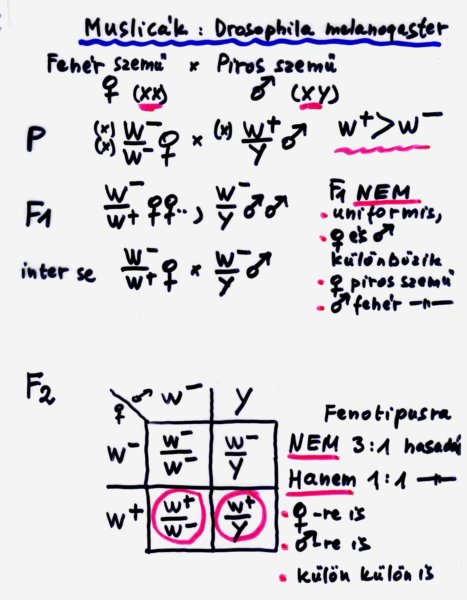 Muslicák : Drosophila melanogaster
Fehér szemű × Piros szemű
♀ (xx) ♂ (xy)
P (x)(x) w⁻/w⁻ ♀ × (x) w⁺/y ♂ w⁺>w⁻
F1 w⁻/w⁺ ♀♀.., w⁻/y ♂♂
F1 NEM
• uniformis,
• ♀ és ♂
különbözik
• ♀ piros szemű
• ♂ fehér —〃—
inter se w⁻/w⁺ ♀ × w⁻/y ♂
F2
♀ ♂ w⁻ y
w⁻ w⁻/w⁻ w⁻/y
w⁺ w⁺/w⁻ w⁺/y
Fenotipusra
NEM 3:1 hasadá
Hanem 1:1 —〃—
• ♀-re is
• ♂-re is
• külön külön is